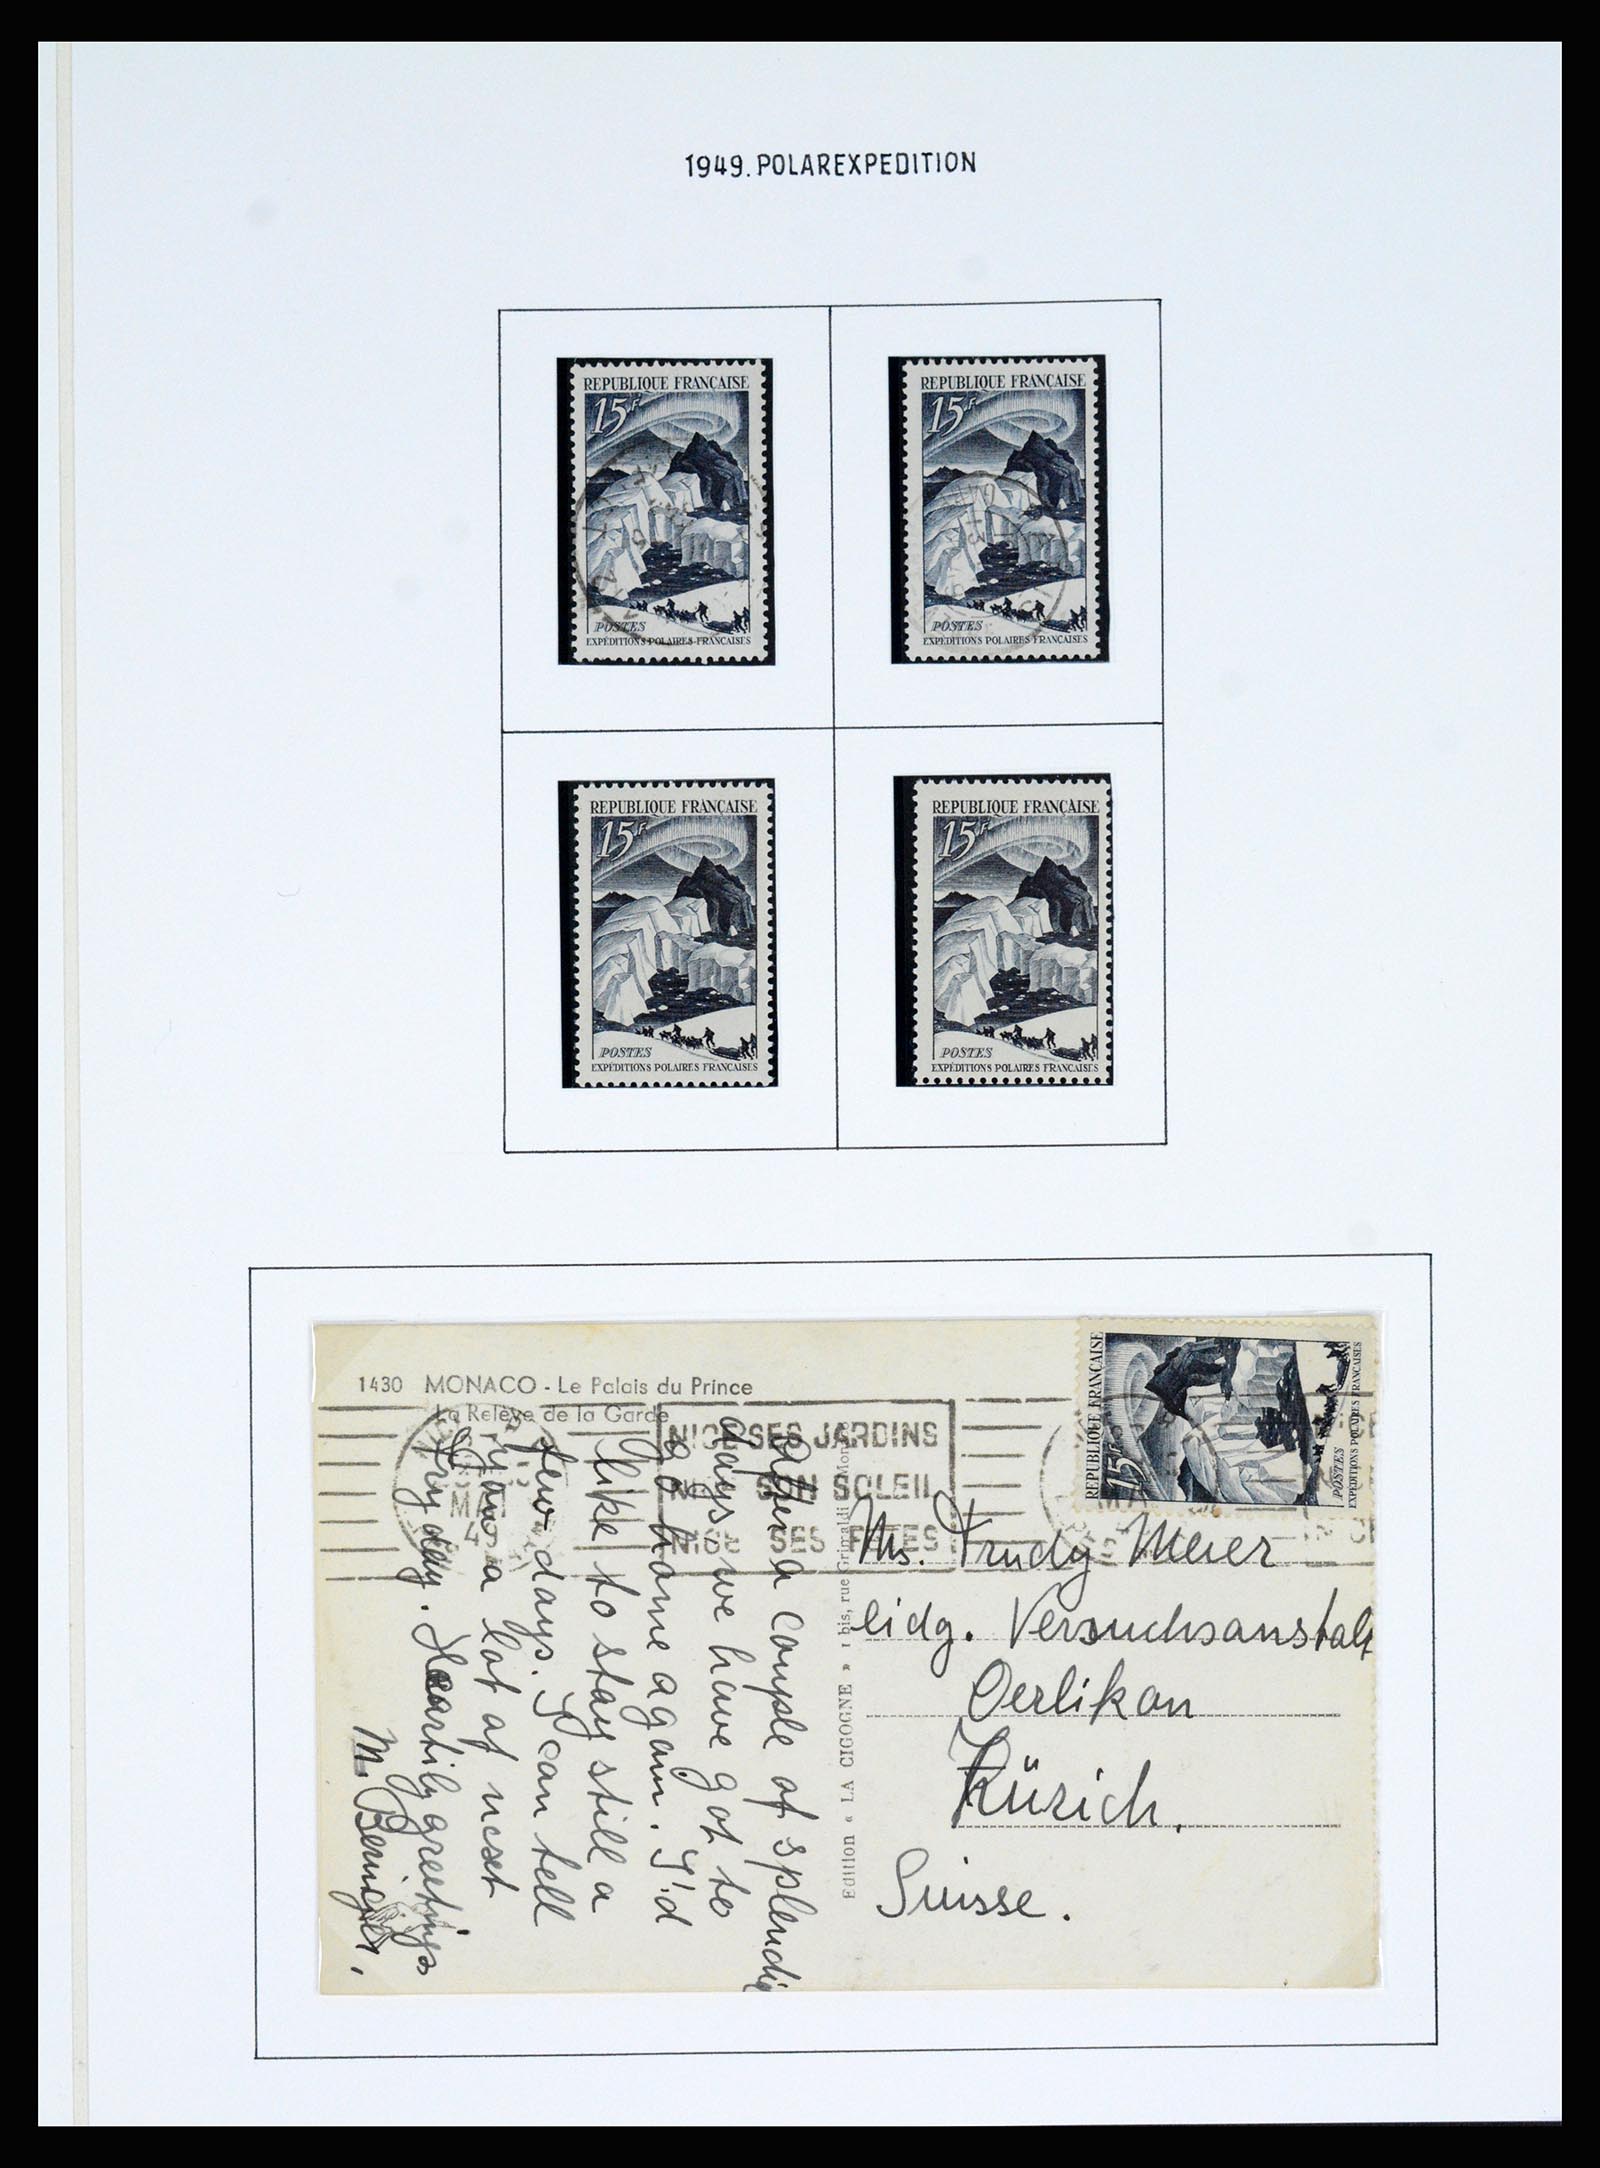 1949. POLAREXPEDITION
REPUBLIQUE FRANÇAISE
15F
POSTES
EXPÉDITIONS POLAIRES FRANÇAISES
REPUBLIQUE FRANÇAISE
15F
POSTES
EXPÉDITIONS POLAIRES FRANÇAISES
REPUBLIQUE FRANÇAISE
15F
POSTES
EXPÉDITIONS POLAIRES FRANÇAISES
REPUBLIQUE FRANÇAISE
15F
POSTES
EXPÉDITIONS POLAIRES FRANÇAISES
1430 MONACO - Le Palais du Prince
La Relève de la Garde
NICE SES JARDINS
SON SOLEIL
NICE SES FETES
After a couple of splendid
days, we have got to
go home again. I'd
like to stay still a
few days. I can tell
you a lot of next
Heartily greetings
M. Beringer.
Edition « LA CIGOGNE » 1 bis, rue Grimaldi Monaco
REPUBLIQUE FRANÇAISE
15F
POSTES
EXPÉDITIONS POLAIRES FRANÇAISES
Ms. Trudy Meier
eidg. Versuchsanstalt
Oerlikon
Zürich.
Suisse.